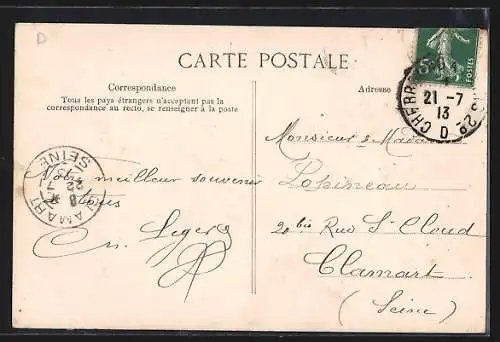 D
CARTE POSTALE
Correspondance
Tous les pays étrangers n'acceptant pas la
correspondance au recto, se renseigner à la poste
Notre meilleur souvenir
à tous
Adresse
Monsieur & Madame
Lopineau
20 bis Rue St Cloud
Clamart
(Seine)
POSTES
21 -7
13
CLAMART
SEINE
22
7
13